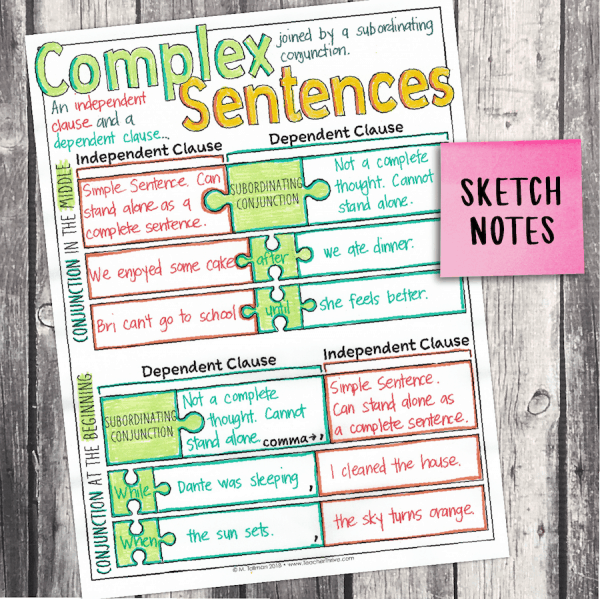 Complex
Sentences
joined by a subordinating
conjunction.
An independent
clause and a
dependent clause...
CONJUNCTION IN THE MIDDLE
Independent Clause
Dependent Clause
Simple Sentence. Can
stand alone as a
complete sentence.
SUBORDINATING
CONJUNCTION
Not a complete
thought. Cannot
stand alone.
We enjoyed some cake after we ate dinner.
Bri can't go to school until she feels better.
CONJUNCTION AT THE BEGINNING
Dependent Clause
Independent Clause
SUBORDINATING
CONJUNCTION
Not a complete
thought. Cannot
stand alone. comma→,
Simple Sentence.
Can stand alone as
a complete sentence.
While Dante was sleeping, I cleaned the house.
When the sun sets, the sky turns orange.
© M. Tallman 2018 • www.teacherthrive.com
SKETCH
NOTES